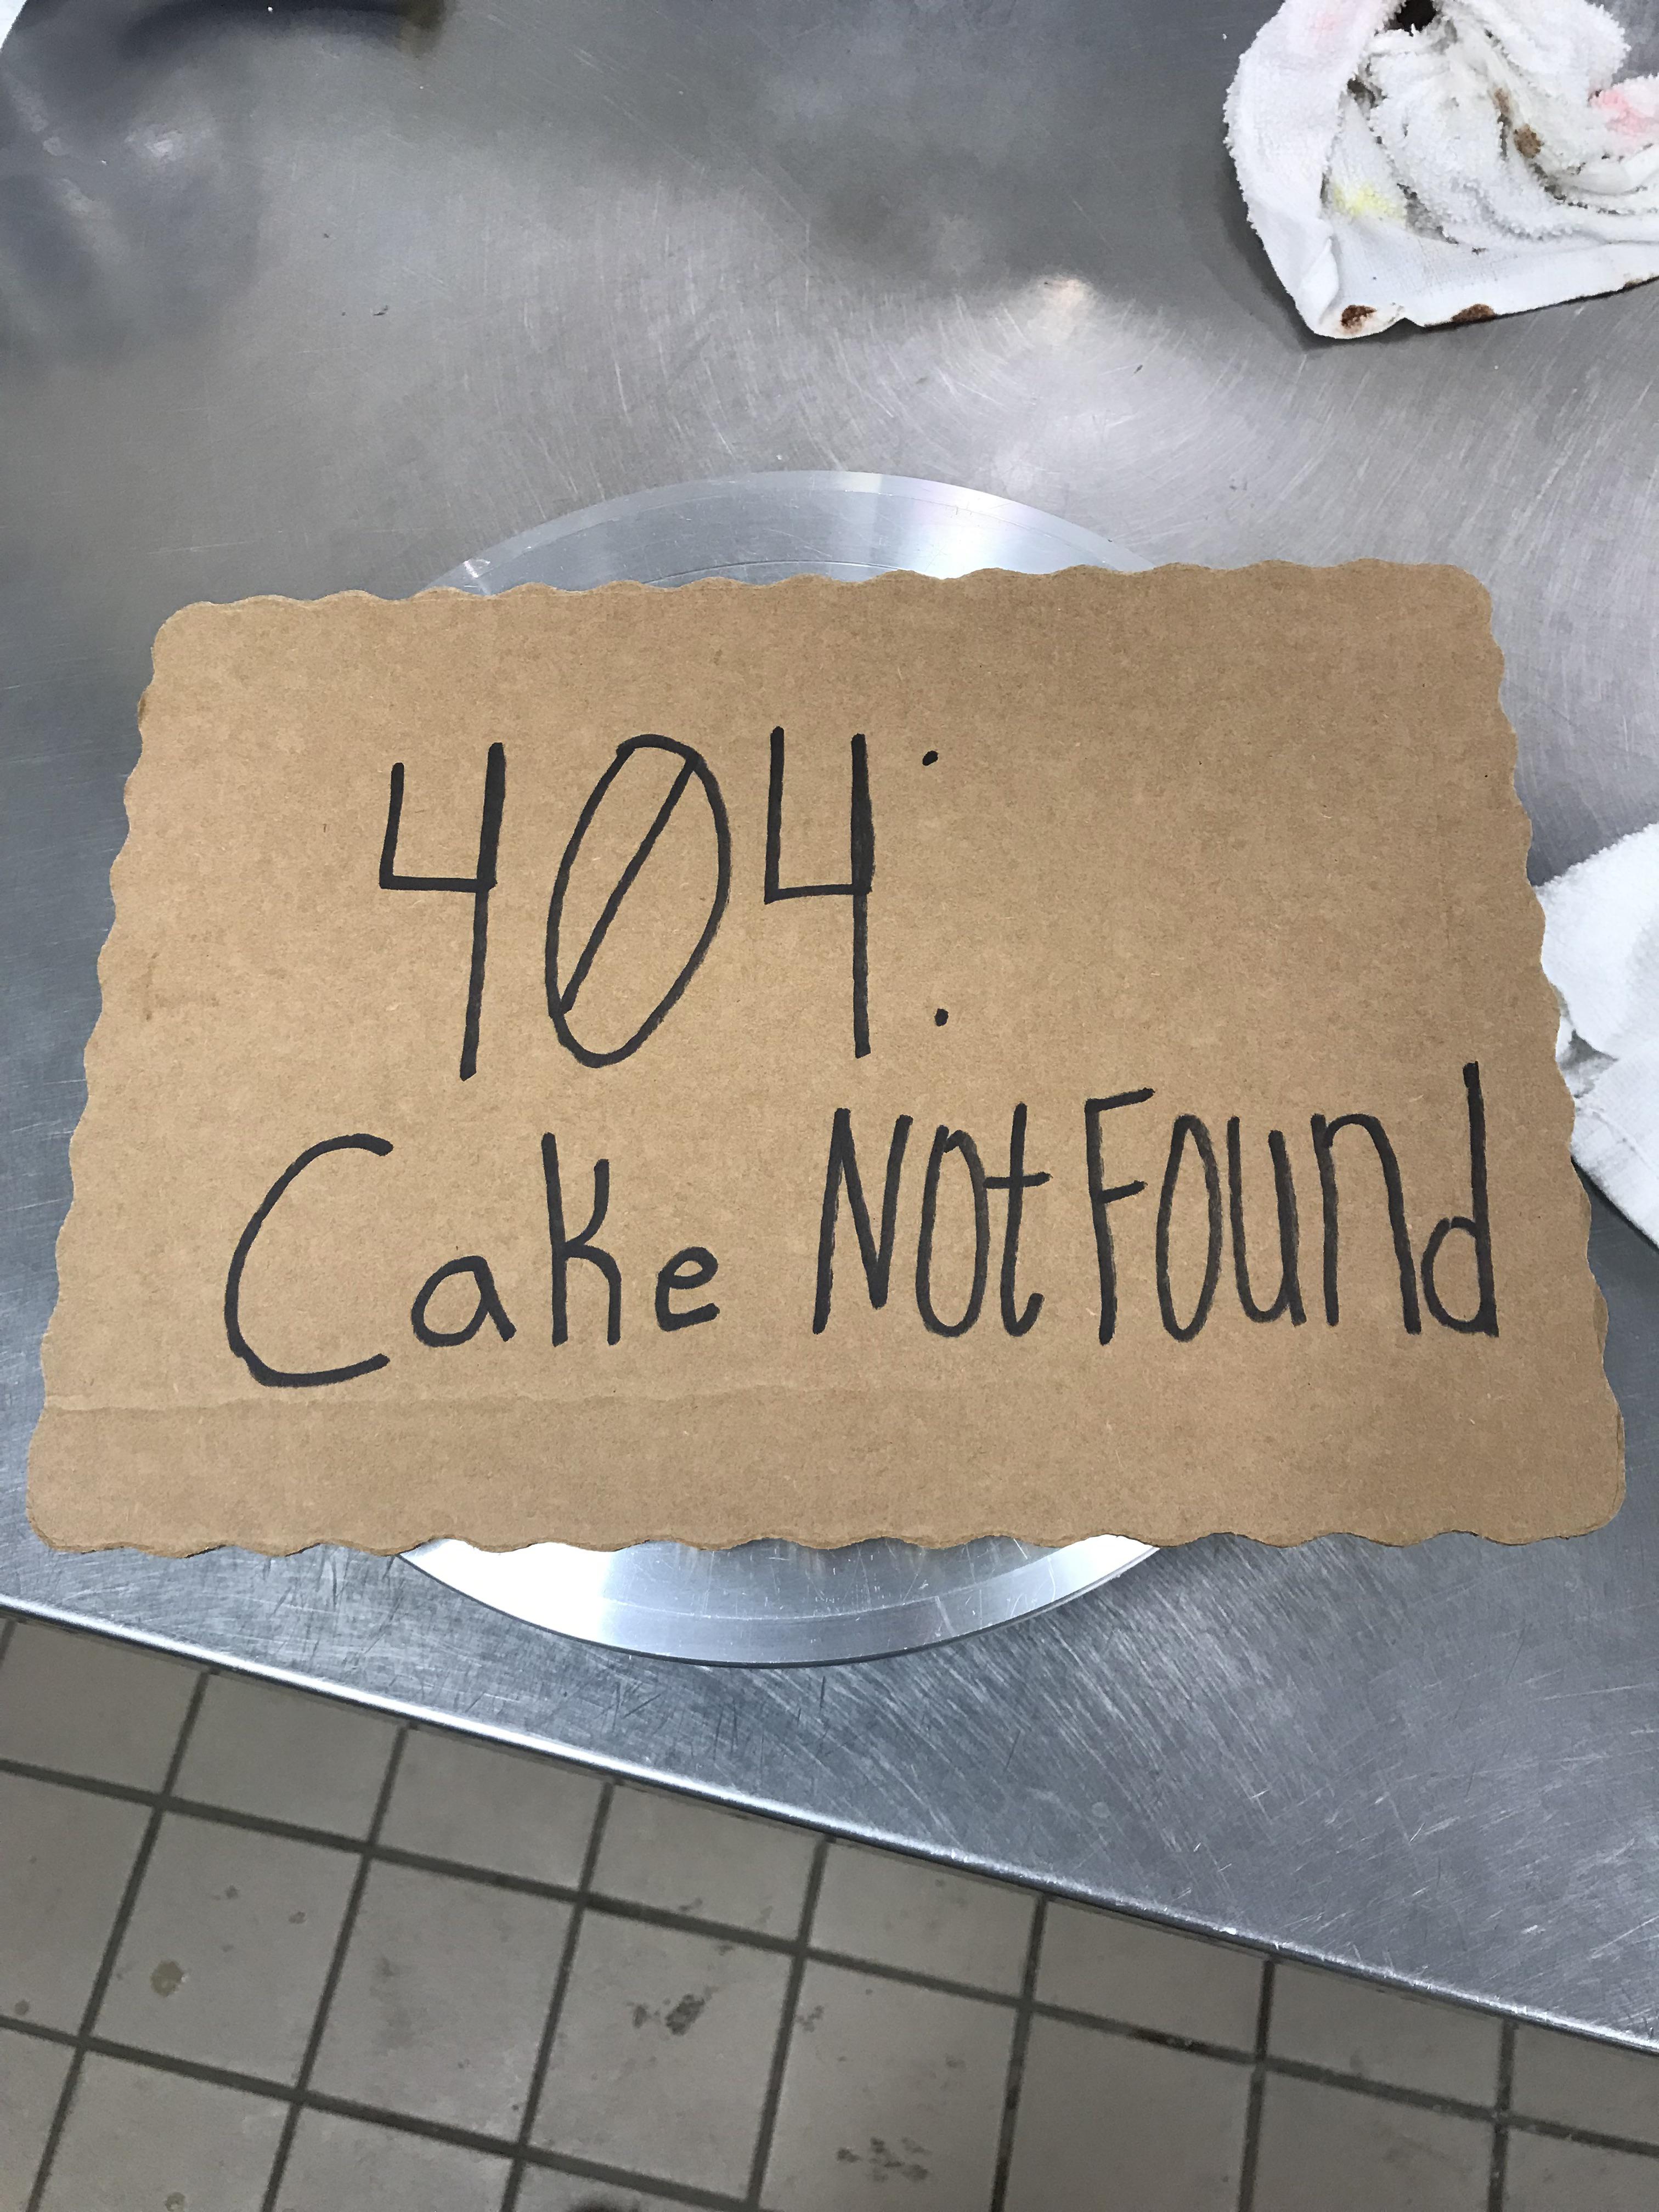 404:
Cake Not Found